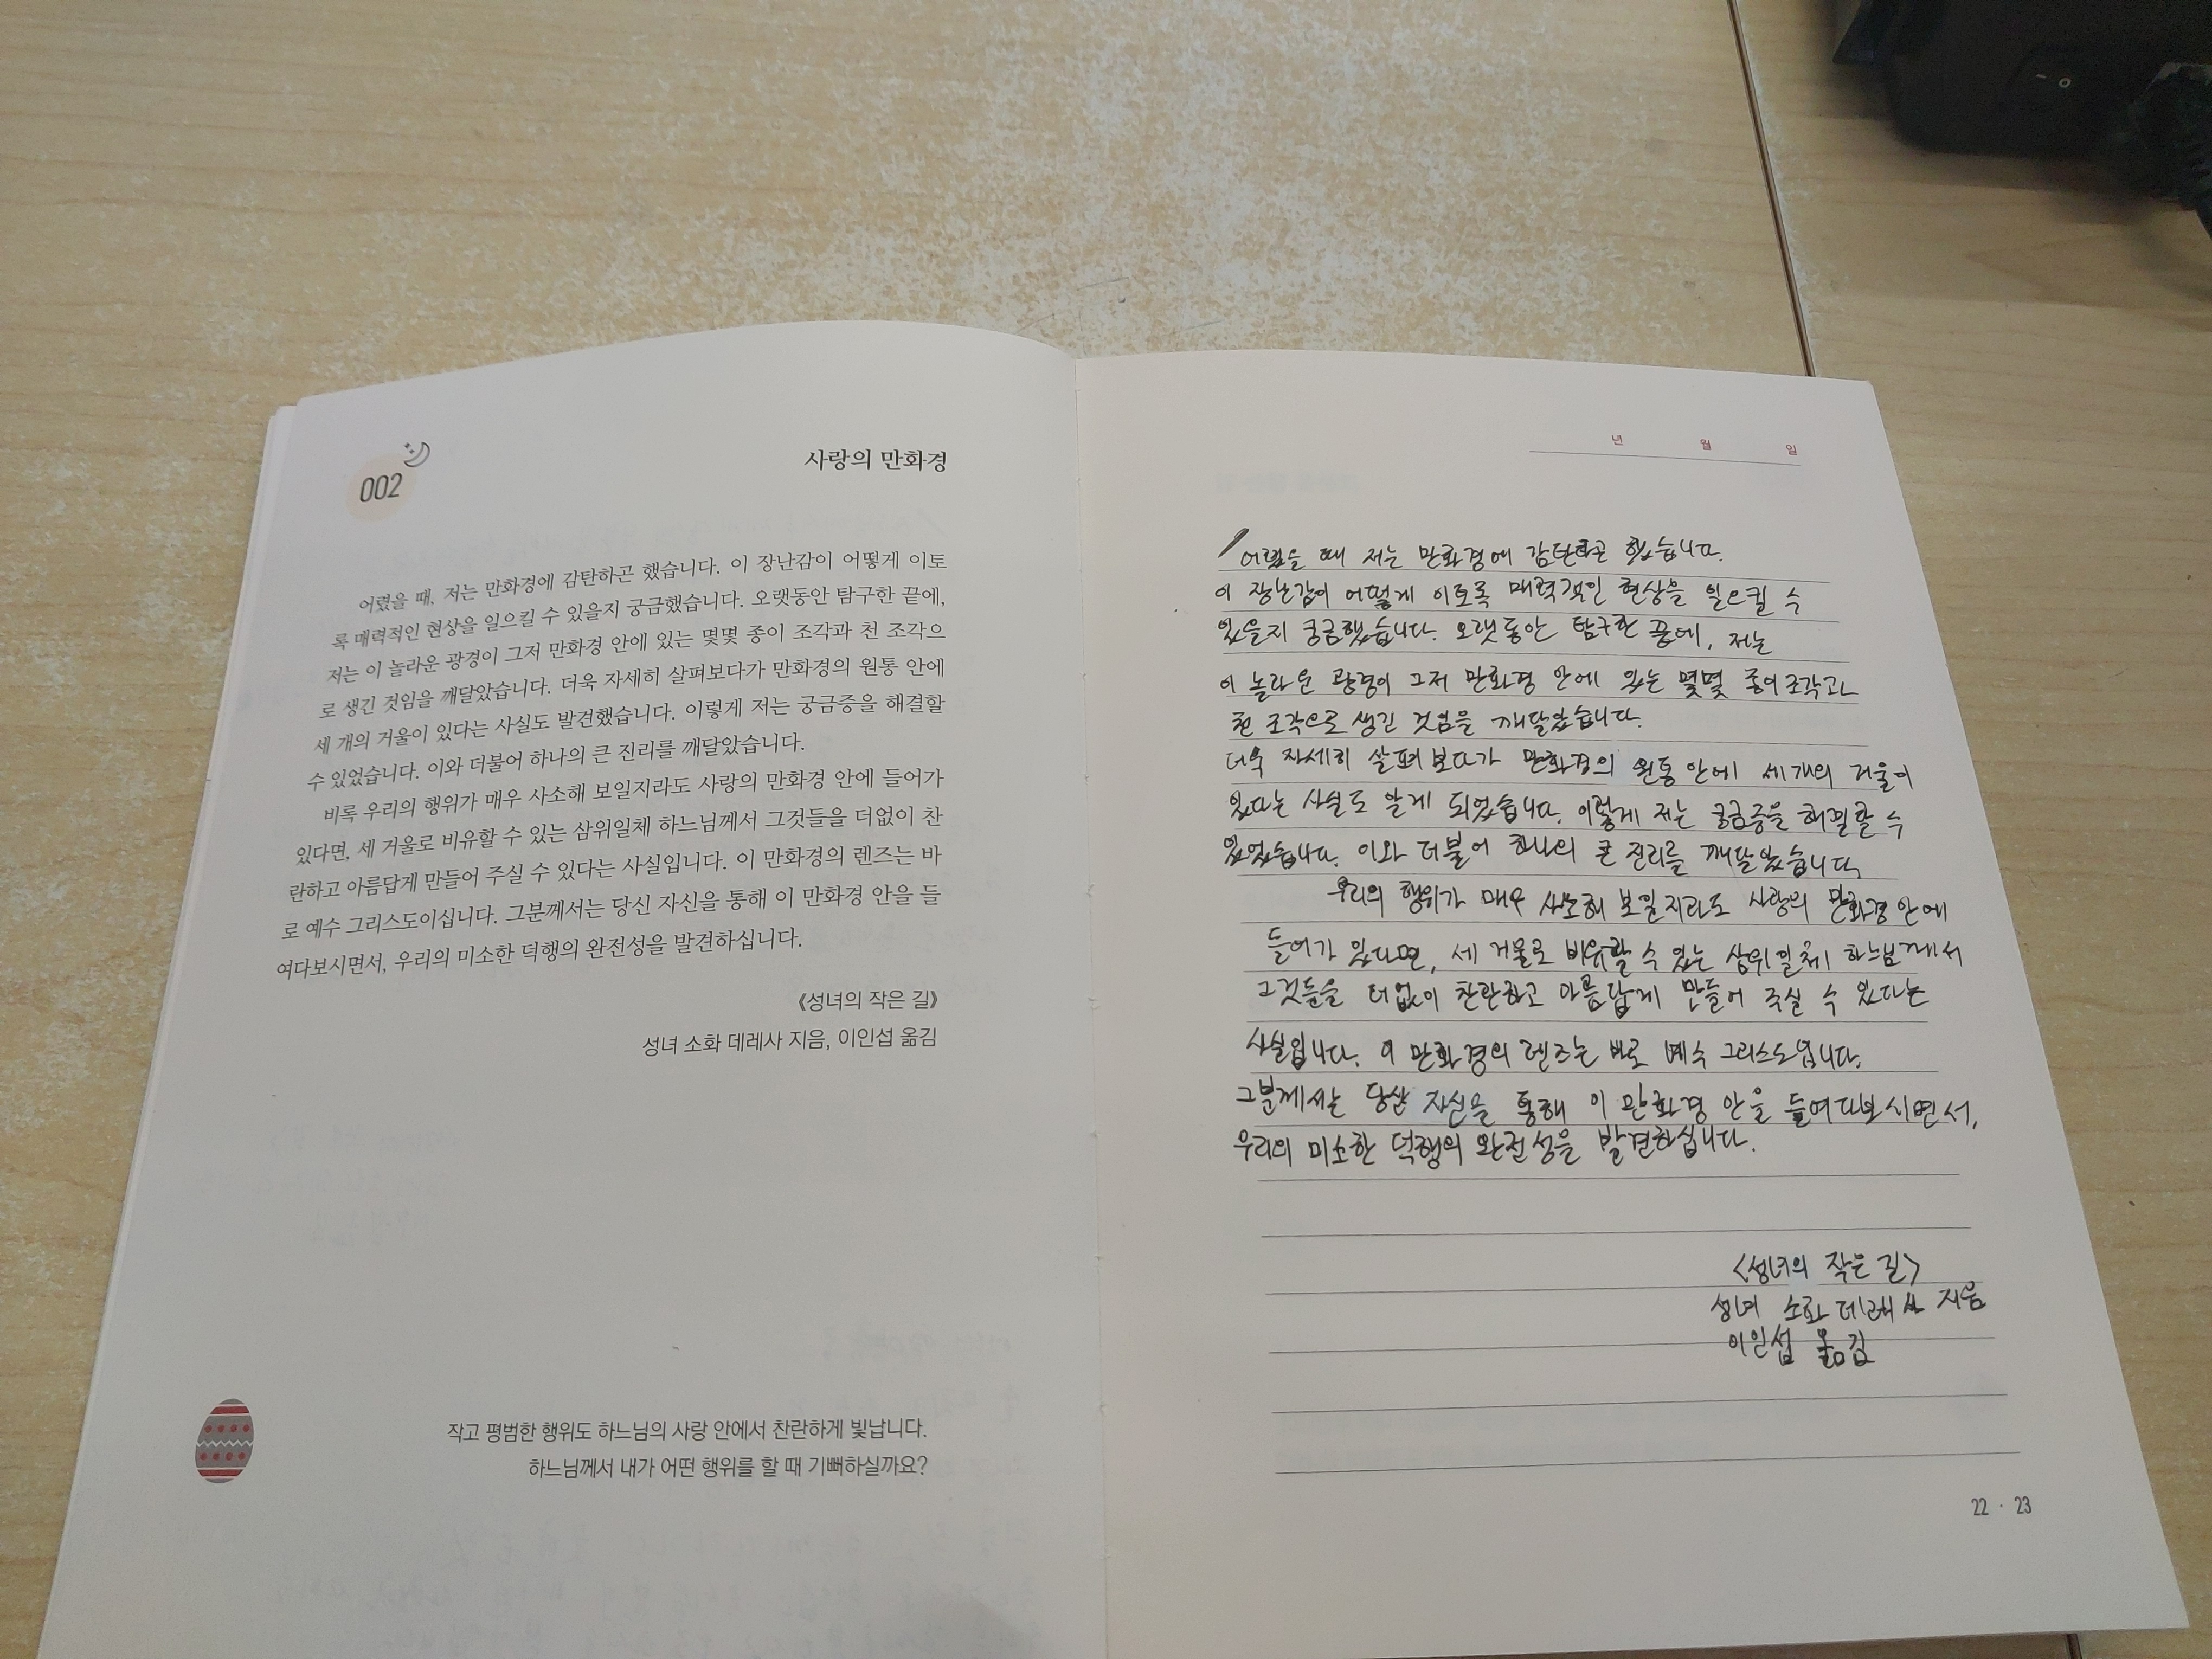 002
사랑의 만화경
어렸을 때, 저는 만화경에 감탄하곤 했습니다. 이 장난감이 어떻게 이토
록 매력적인 현상을 일으킬 수 있을지 궁금했습니다. 오랫동안 탐구한 끝에,
저는 이 놀라운 광경이 그저 만화경 안에 있는 몇몇 종이 조각과 천 조각으
로 생긴 것임을 깨달았습니다. 더욱 자세히 살펴보다가 만화경의 원통 안에
세 개의 거울이 있다는 사실도 발견했습니다. 이렇게 저는 궁금증을 해결할
수 있었습니다. 이와 더불어 하나의 큰 진리를 깨달았습니다.
비록 우리의 행위가 매우 사소해 보일지라도 사랑의 만화경 안에 들어가
있다면, 세 거울로 비유할 수 있는 삼위일체 하느님께서 그것들을 더없이 찬
란하고 아름답게 만들어 주실 수 있다는 사실입니다. 이 만화경의 렌즈는 바
로 예수 그리스도이십니다. 그분께서는 당신 자신을 통해 이 만화경 안을 들
여다보시면서, 우리의 미소한 덕행의 완전성을 발견하십니다.
《성녀의 작은 길》
성녀 소화 데레사 지음, 이인섭 옮김
작고 평범한 행위도 하느님의 사랑 안에서 찬란하게 빛납니다.
하느님께서 내가 어떤 행위를 할 때 기뻐하실까요?
년 월 일
어렸을 때 저는 만화경에 감탄하곤 했습니다.
이 장난감이 어떻게 이토록 매력적인 현상을 일으킬 수
있을지 궁금했습니다. 오랫동안 탐구한 끝에, 저는
이 놀라운 광경이 그저 만화경 안에 있는 몇몇 종이조각과
천 조각으로 생긴 것임을 깨달았습니다.
더욱 자세히 살펴보다가 만화경의 원통 안에 세개의 거울이
있다는 사실도 알게 되었습니다. 이렇게 저는 궁금증을 해결할 수
있었습니다. 이와 더불어 하나의 큰 진리를 깨달았습니다.
우리의 행위가 매우 사소해 보일지라도 사랑의 만화경 안에
들어가 있다면, 세 거울로 비유할 수 있는 삼위일체 하느님께서
그것들을 더없이 찬란하고 아름답게 만들어 주실 수 있다는
사실입니다. 이 만화경의 렌즈는 바로 예수 그리스도입니다.
그분께서는 당신 자신을 통해 이 만화경 안을 들여다보시면서,
우리의 미소한 덕행의 완전성을 발견하십니다.
<성녀의 작은 길>
성녀 소화 데레사 지음
이인섭 옮김
22 · 23